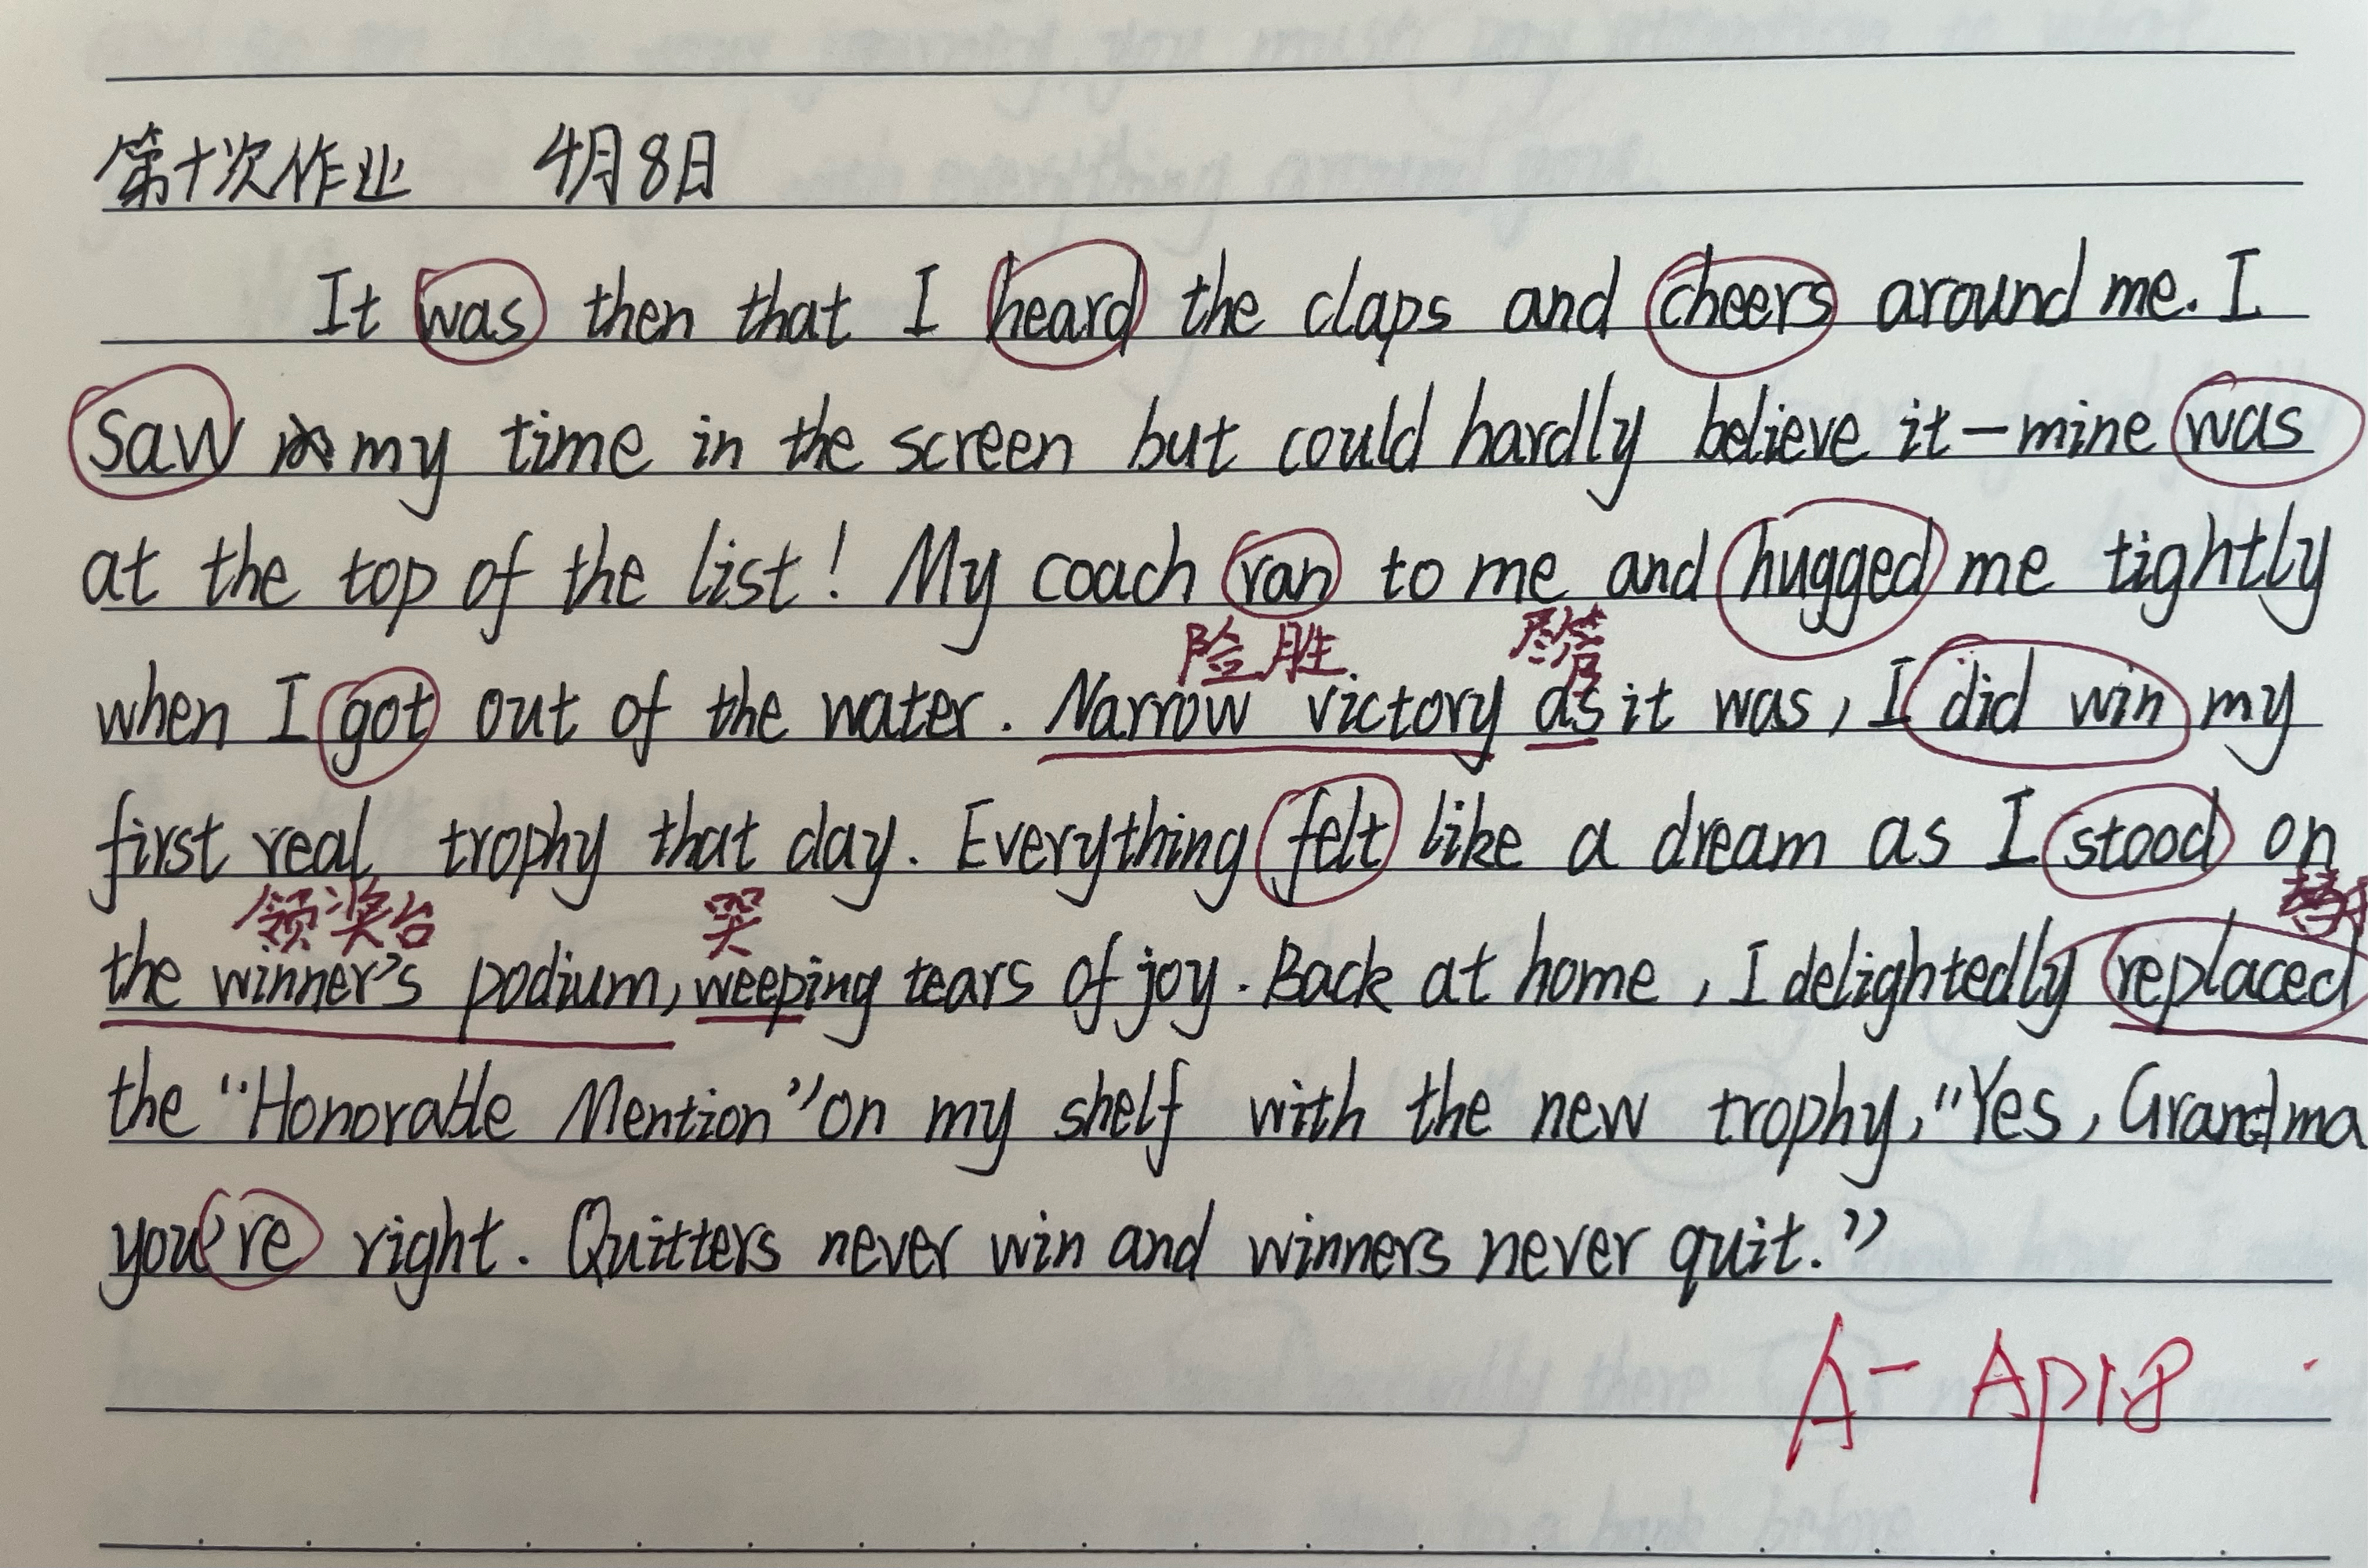 第十次作业 4月8日
It was then that I heard the claps and cheers around me. I
saw my time in the screen but could hardly believe it-mine was
at the top of the list! My coach ran to me and hugged me tightly
险胜 尽管
when I got out of the water. Narrow victory as it was, I did win my
first real trophy that day. Everything felt like a dream as I stood on
领奖台 哭
the winner's podium, weeping tears of joy. Back at home, I delightedly replaced
the "Honorable Mention" on my shelf with the new trophy, "Yes, Grandma
you're right. Quitters never win and winners never quit."
A- Apr8